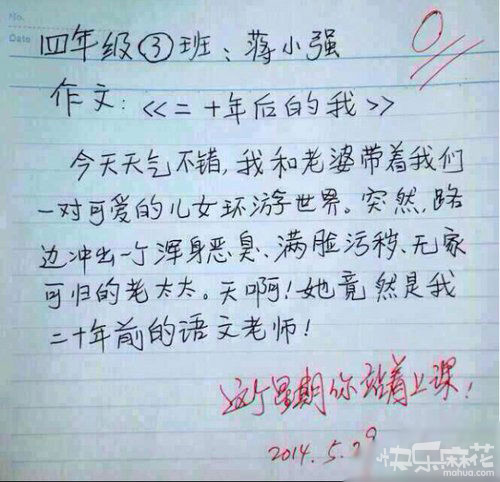 No.
Date
0
四年级③班：蒋小强
作文：《二十年后的我》
今天天气不错，我和老婆带着我们
一对可爱的儿女环游世界。突然，路
边冲出一个浑身恶臭、满脸污秽、无家
可归的老太太。天啊！她竟然是我
二十年前的语文老师！
这个星期你站着上课！
2014.5.29
快乐麻花
mahua.com